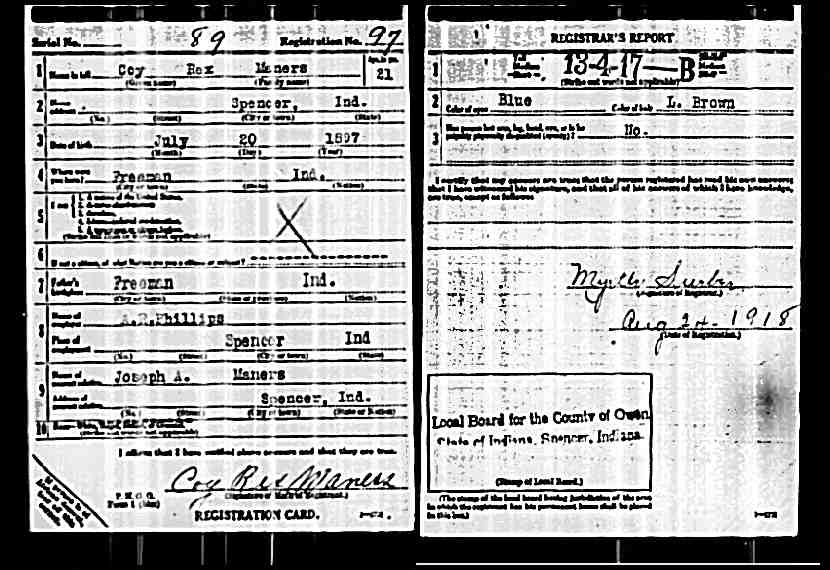 Serial No. 89 Registration No. 97
1 Name in full Coy Rex Maners Age, in yrs. 21
(Given name) (Family name)
2 Home address Spencer, Ind.
(No.) (Street) (City or town) (State)
3 Date of birth July 20 1897
(Month) (Day) (Year)
4 Where were you born? Freeman Ind.
(City or town) (State) (Nation)
5 I am
X
6 If not a citizen, of what Nation are you a citizen or subject?
7 Father's birthplace Freeman Ind.
(City or town) (State or province) (Nation)
8 Name of employer A.R.Phillips
Place of employment Spencer Ind
(No.) (Street) (City or town) (State)
9 Name of nearest relative Joseph A. Maners
Address of nearest relative Spencer, Ind.
(No.) (Street) (City or town) (State or Nation)
10
I affirm that I have verified above answers and that they are true.
Coy Rex Maners
P. M. G. O.
Form 1 (blue) (Signature or mark of Registrant.)
REGISTRATION CARD.
REGISTRAR'S REPORT
13-4-17-B
1
(Strike out words not applicable)
2 Color of eyes Blue Color of hair L. Brown
3 Has person lost arm, leg, hand, eye, or is he
palpably physically disqualified (specify)? No.
I certify that my answers are true; that the person registered has read his own answers;
that I have witnessed his signature, and that all of his answers of which I have knowledge,
are true, except as follows:
(Signature of Registrar.)
Aug 24-1918
(Date of Registration.)
Local Board for the County of Owen,
State of Indiana, Spencer, Indiana.
(Stamp of Local Board.)
(The stamp of the local board having jurisdiction of the area
in which the registrant has his permanent home shall be placed
in this box.)